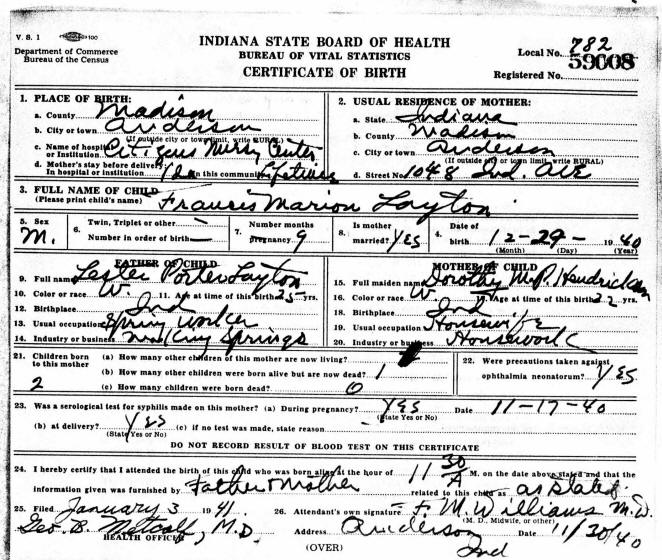 V. S. 1
Department of Commerce
Bureau of the Census
INDIANA STATE BOARD OF HEALTH
BUREAU OF VITAL STATISTICS
CERTIFICATE OF BIRTH
Local No. 782
59008
Registered No.
1. PLACE OF BIRTH:
a. County Madison
b. City or town Anderson
(If outside city or town limit, write RURAL)
c. Name of hospital or Institution Citizens Nursg Center
d. Mother's stay before delivery:
In hospital or institution 1 da In this community Lifetime
2. USUAL RESIDENCE OF MOTHER:
a. State Indiana
b. County Madison
c. City or town Anderson
(If outside city or town limit, write RURAL)
d. Street No. 1048 Ind. AVE
3. FULL NAME OF CHILD Francis Marion Layton
(Please print child's name)
5. Sex M.
6. Twin, Triplet or other —
Number in order of birth —
7. Number months pregnancy 9
8. Is mother married? YES
4. Date of birth 12-29- 1940
(Month) (Day) (Year)
FATHER OF CHILD
9. Full name Lester Porter Layton
10. Color or race W. 11. Age at time of this birth 25 yrs.
12. Birthplace Ind
13. Usual occupation Spring worker
14. Industry or business Springs
MOTHER OF CHILD
15. Full maiden name Dorothy M.P. Hendrickson
16. Color or race W 17. Age at time of this birth 22 yrs.
18. Birthplace Ind
19. Usual occupation Housewife
20. Industry or business Housework
21. Children born to this mother 2
(a) How many other children of this mother are now living?
(b) How many other children were born alive but are now dead? 1
(c) How many children were born dead? 0
22. Were precautions taken against ophthalmia neonatorum? YES
23. Was a serological test for syphilis made on this mother? (a) During pregnancy? YES Date 11-17-40
(State Yes or No)
(b) at delivery? YES (c) if no test was made, state reason -
(State Yes or No)
DO NOT RECORD RESULT OF BLOOD TEST ON THIS CERTIFICATE
24. I hereby certify that I attended the birth of this child who was born alive at the hour of 11 30 A M. on the date above stated and that the
information given was furnished by Father & Mother related to this child as as stated.
25. Filed January 3 1941. 26. Attendant's own signature F. M. Williams M.D.
(M. D., Midwife, or other)
Geo. B. Metcalf, M.D. Address Anderson Ind Date 11/30/40
HEALTH OFFICER
(OVER)